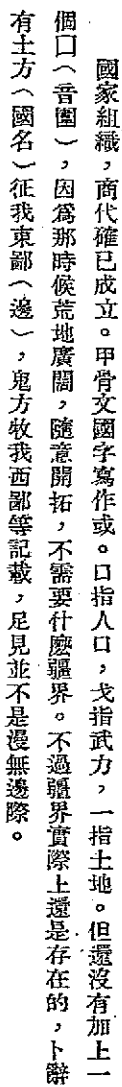 國家組織，商代確已成立。甲骨文國字寫作或。口指人口，戈指武力，一指土地。但還沒有加上一
個囗（音圍），因爲那時候荒地廣闊，隨意開拓，不需要什麽疆界。不過疆界實際上還是存在的，卜辭
有土方（國名）征我東鄙（邊），鬼方牧我西鄙等記載，足見並不是漫無邊際。